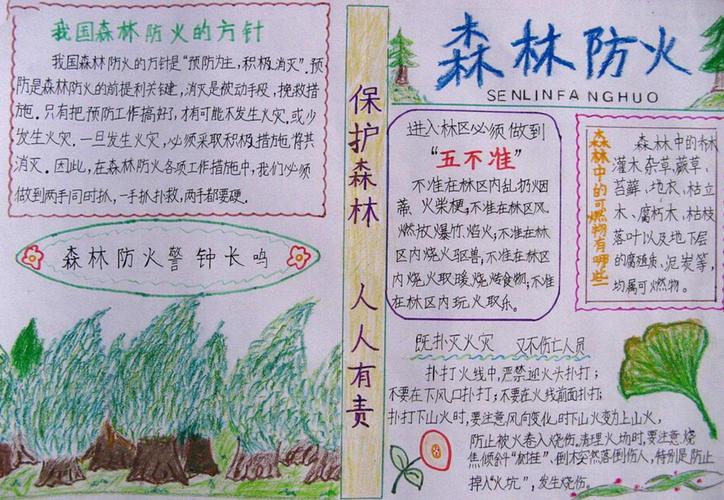 我国森林防火的方针
我国森林防火的方针是“预防为主，积极消灭”。预
防是森林防火的前提利关键，消灭是被动手段，挽救措
施。只有把预防工作搞好，才有可能不发生火灾，或少
发生火灾。一旦发生火灾，必须采取积极措施将其
消灭。因此，在森林防火各项工作措施中，我们必须
做到两手同时抓，一手抓扑救，两手都要硬。
森林防火警钟长鸣
保护森林 人人有责
森林防火
SENLINFANGHUO
进入林区必须做到
“五不准”
不准在林区内乱扔烟
蒂、火柴梗；不准在林区风
燃放爆竹，焰火；不准在林
区内烧火驱兽；不准在林区
内烧火取暖，烧烤食物；不准
在林区内玩火取乐。
森林中的可燃物有哪些
森林中的
灌木杂草，蕨草、
苔藓、地衣、枯立
木、腐朽木、枯枝
落叶以及地下层
的腐殖质、泥炭等，
均属可燃物。
既扑灭火灾 又不伤亡人员
扑打火线中，严禁迎火头扑打；
不要在下风口扑打；不要在火线前面扑打；
扑打下山火时，要注意风向变化，时下山火变为上山火，
防止被火卷入烧伤。清理火场时，要注意烧
焦倾斜“树挂”、倒木突然落倒伤人，特别是防止
掉入“火坑”，发生烧伤。